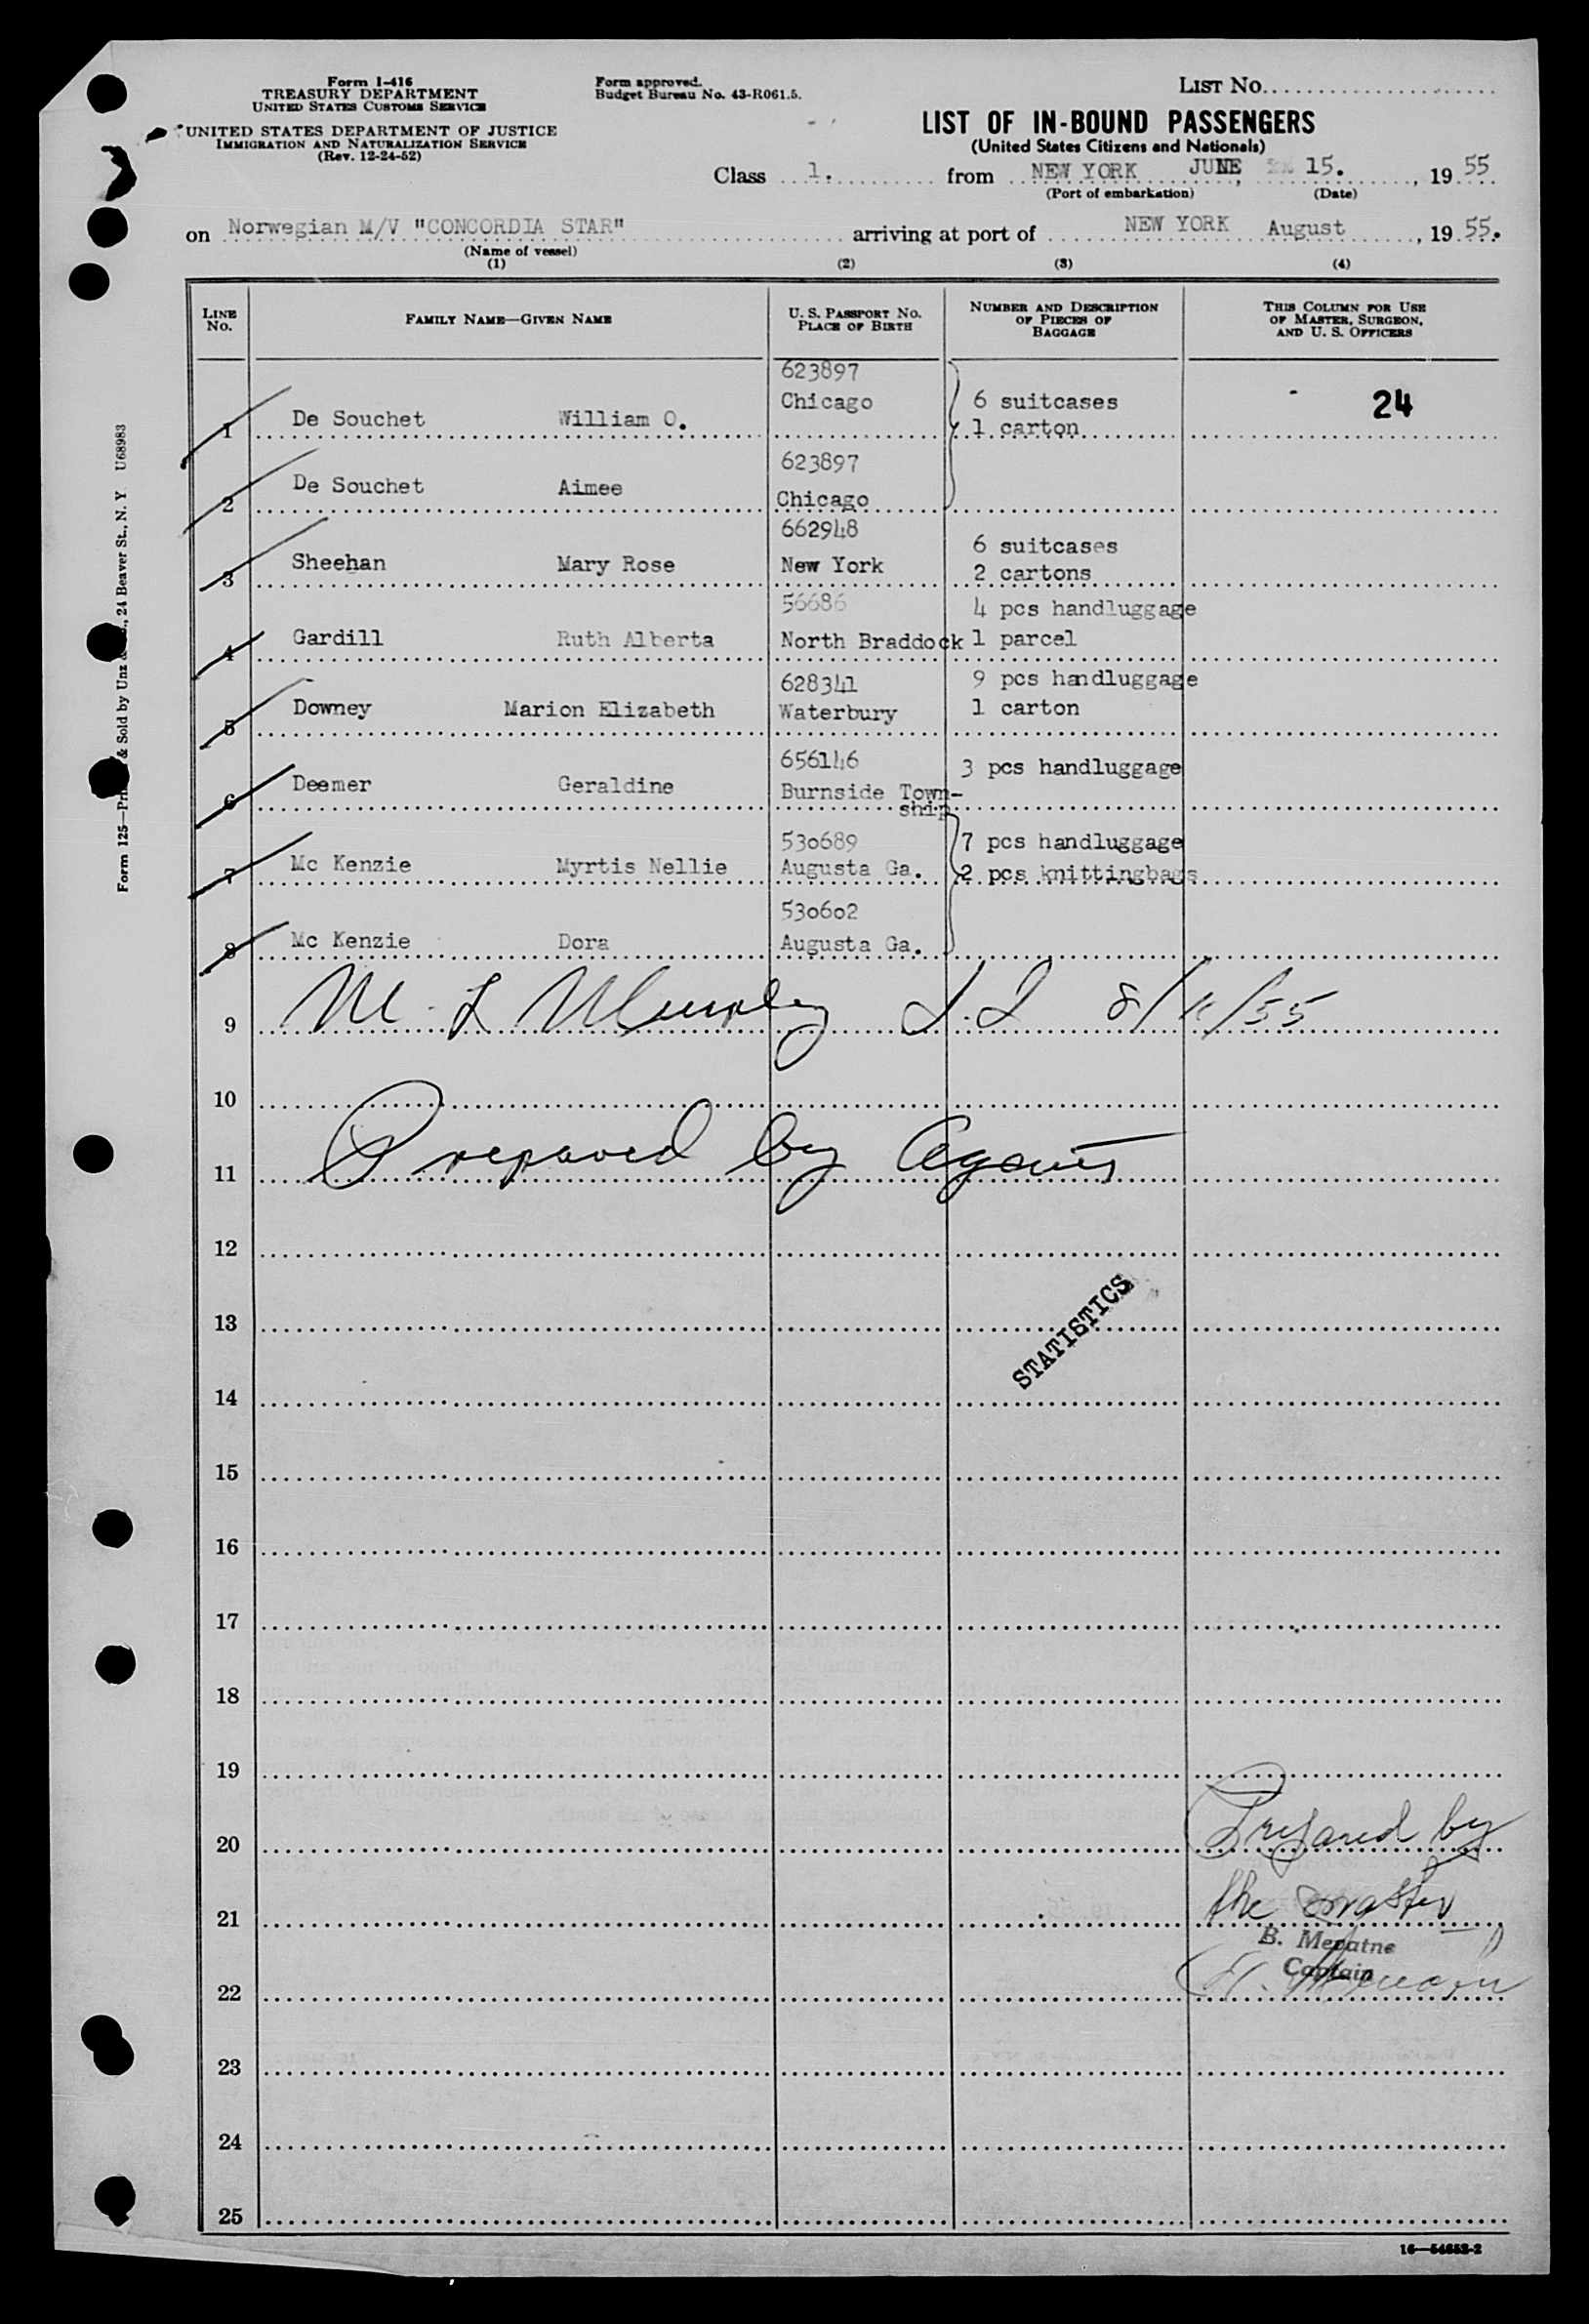 Form I-416
TREASURY DEPARTMENT
UNITED STATES CUSTOMS SERVICE
UNITED STATES DEPARTMENT OF JUSTICE
IMMIGRATION AND NATURALIZATION SERVICE
(Rev. 12-24-52)
Form approved.
Budget Bureau No. 43-R061.5.
LIST NO.
LIST OF IN-BOUND PASSENGERS
(United States Citizens and Nationals)
Class 1. from NEW YORK JUNE 15. , 19 55
(Port of embarkation) (Date)
on Norwegian M/V "CONCORDIA STAR" arriving at port of NEW YORK August , 19 55.
(Name of vessel)
(1) (2) (3) (4)
LINE NO. FAMILY NAME—GIVEN NAME U. S. PASSPORT NO. PLACE OF BIRTH NUMBER AND DESCRIPTION OF PIECES OF BAGGAGE THIS COLUMN FOR USE OF MASTER, SURGEON, AND U. S. OFFICERS
623897
1 De Souchet William O. Chicago 6 suitcases 24
1 carton
623897
2 De Souchet Aimee Chicago
662948
3 Sheehan Mary Rose New York 6 suitcases
2 cartons
56686 4 pcs handluggage
4 Gardill Ruth Alberta North Braddock 1 parcel
628341 9 pcs handluggage
5 Downey Marion Elizabeth Waterbury 1 carton
656146 3 pcs handluggage
6 Deemer Geraldine Burnside Town-
ship
530689 7 pcs handluggage
7 Mc Kenzie Myrtis Nellie Augusta Ga. 2 pcs knittingbags
530602
8 Mc Kenzie Dora Augusta Ga.
9 M. L Murphy I.I 8/11/55
10
11 Prepared by Agents
12
13
STATISTICS
14
15
16
17
18
19
20 Prepared by
21 the master
B. Mepatne
Captain
22
23
24
25
16—54653-2
Form 125— & Sold by Unz & , 24 Beaver St., N. Y U68983